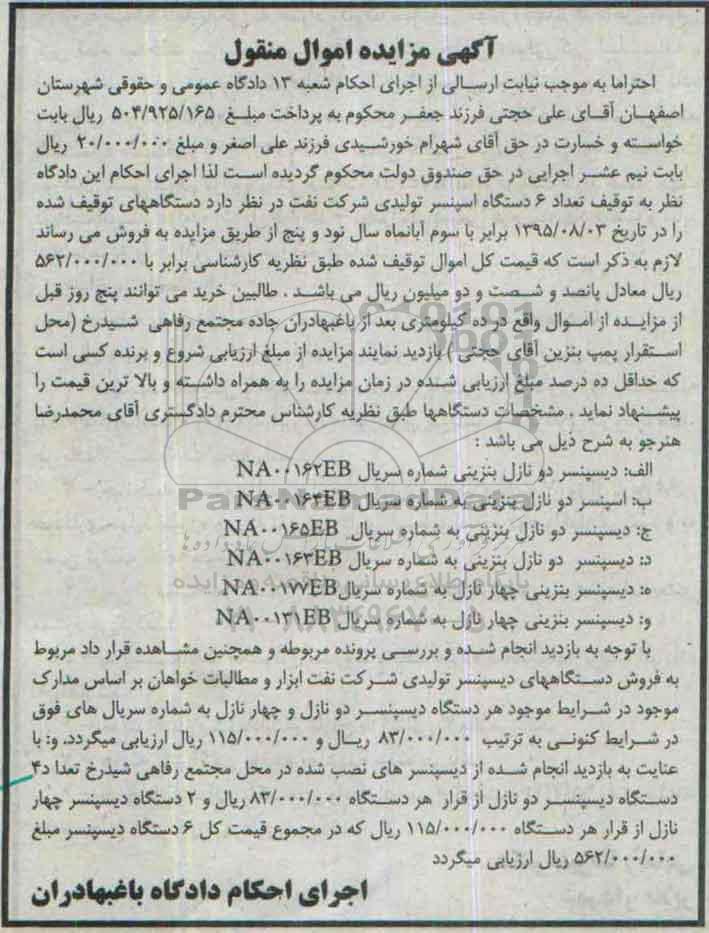 آگهی مزایده اموال منقول
احتراما به موجب نیابت ارسـالی از اجرای احکام شعبه ۱۳ دادگاه عمومی و حقوقی شهرستان
اصفهـان آقـای علی حجتی فرزند جعفـر محکوم به پرداخت مبلـغ ۵۰۴/۹۲۵/۱۶۵ ریال بابت
خواسـته و خسارت در حق آقای شهرام خورشـیدی فرزند علی اصغر و مبلغ ۲۰/۰۰۰/۰۰۰ ریال
بابت نیم عشـر اجرایی در حق صندوق دولت محکوم گردیده اسـت لذا اجرای احکام این دادگاه
نظر به توقیف تعداد ۶ دستگاه اسپنسر تولیدی شرکت نفت در نظر دارد دستگاههای توقیف شده
را در تاریخ ۱۳۹۵/۰۸/۰۳ برابر با سوم آبانماه سال نود و پنج از طریق مزایده به فروش می رساند
لازم به ذکر است که قیمت کل اموال توقیف شده طبق نظریه کارشناسی برابر با ۵۶۲/۰۰۰/۰۰۰
ریال معادل پانصد و شـصت و دو میلیون ریال می باشـد . طالبین خرید می توانند پنج روز قبل
از مزایـده از امـوال واقع در ده کیلومتری بعد از باغبهادران جاده مجتمع رفاهی شـیدرخ (محل
اسـتقرار پمپ بنزین آقای حجتی ) بازدید نمایند مزایده از مبلغ ارزیابی شروع و برنده کسی است
که حداقل ده درصد مبلغ ارزیابی شـده در زمان مزایده را به همراه داشـته و بالا ترین قیمت را
پیشـنهاد نماید . مشخصات دستگاهها طبق نظریه کارشناس محترم دادگستری آقای محمدرضا
هنرجو به شرح ذیل می باشد :
الف: دیسپنسر دو نازل بنزینی شماره سریال NA۰۰۱۶۲EB
ب: اسپنسر دو نازل بنزینی به شماره سریال NA۰۰۱۶۴EB
ج: دیسپنسر دو نازل بنزینی به شماره سریال NA۰۰۱۶۵EB
د: دیسپنسر دو نازل بنزینی به شماره سریال NA۰۰۱۶۳EB
ه: دیسپنسر بنزینی چهار نازل به شماره سریال NA۰۰۱۷۷EB
و: دیسپنسر بنزینی چهار نازل به شماره سریال NA۰۰۱۳۱EB
با توجه به بازدید انجام شـده و بررسـی پرونده مربوطه و همچنین مشـاهده قرار داد مربوط
به فروش دسـتگاههای دیسپنسر تولیدی شـرکت نفت ابزار و مطالبات خواهان بر اساس مدارک
موجود در شـرایط موجود هر دستگاه دیسپنسـر دو نازل و چهار نازل به شماره سریال های فوق
در شـرایط کنونـی به ترتیب ۸۳/۰۰۰/۰۰۰ ریـال و ۱۱۵/۰۰۰/۰۰۰ ریال ارزیابی میگردد. و: با
عنایت به بازدید انجام شـده از دیسپنسر های نصب شده در محل مجتمع رفاهی شیدرخ تعدا د۴
دسـتگاه دیسپنسـر دو نازل از قرار هر دسـتگاه ۸۳/۰۰۰/۰۰۰ ریال و ۲ دستگاه دیسپنسر چهار
نازل از قرار هر دسـتگاه ۱۱۵/۰۰۰/۰۰۰ ریال که در مجموع قیمت کل ۶ دستگاه دیسپنسر مبلغ
۵۶۲/۰۰۰/۰۰۰ ریال ارزیابی میگردد
اجرای احکام دادگاه باغبهادران
ParsNamadData